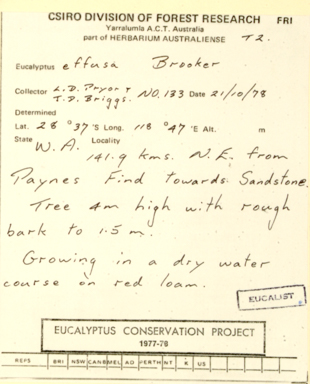 CSIRO DIVISION OF FOREST RESEARCH FRI
Yarralumla A.C.T. Australia
part of HERBARIUM AUSTRALIENSE T2.
Eucalyptus effusa Brooker
Collector L.D. Pryor & T.D. Briggs. NO. 133 Date 21/10/78
Determined
Lat. 28 ° 37 'S Long. 118 ° 47 'E Alt. m
State W.A. Locality
141.9 kms. N.E. from
Paynes Find towards Sandstone.
Tree 4m high with rough
bark to 1.5 m.
Growing in a dry water
course on red loam.
EUCALIST
EUCALYPTUS CONSERVATION PROJECT
1977-78
REFS BRI NSW CANB MEL AD PERTH NT K US